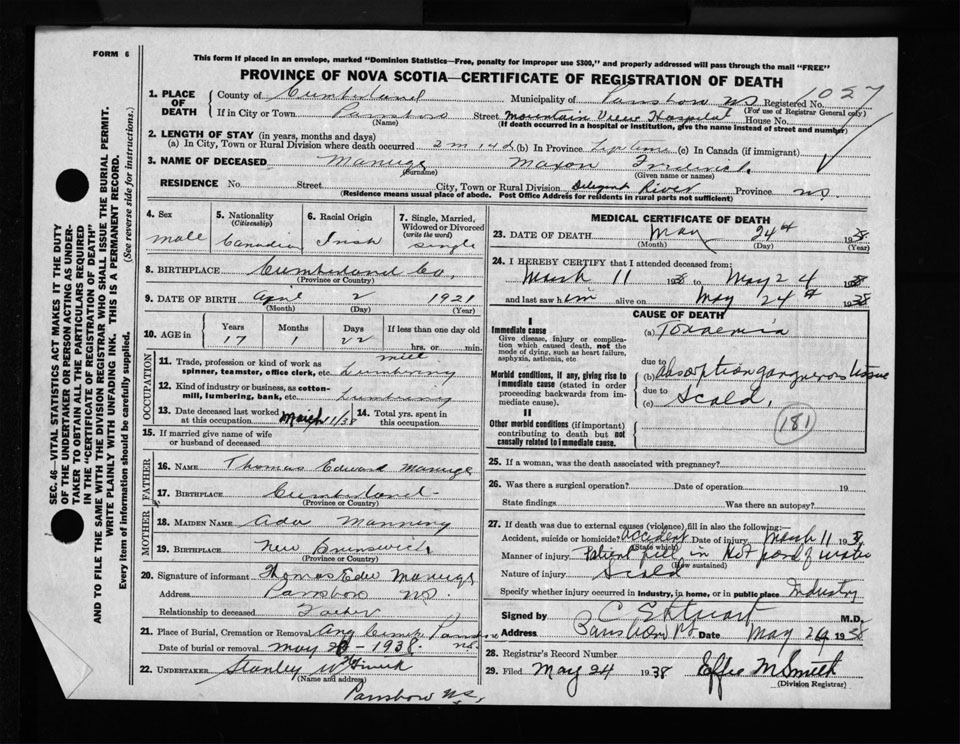 FORM 6
This form if placed in an envelope, marked "Dominion Statistics—Free, penalty for improper use $300," and properly addressed will pass through the mail "FREE"
PROVINCE OF NOVA SCOTIA—CERTIFICATE OF REGISTRATION OF DEATH
1. PLACE OF DEATH County of Cumberland Municipality of Parrsboro NS Registered No. 1027
(For use of Registrar General only)
If in City or Town Parrsboro Street Mountain View Hospital House No.
(Name) (If death occurred in a hospital or institution, give the name instead of street and number)
2. LENGTH OF STAY (in years, months and days)
(a) In City, Town or Rural Division where death occurred 2 m 14 d (b) In Province Life time (c) In Canada (if immigrant)
3. NAME OF DECEASED Manuge Maxon Frederick
(Surname) (Given name or names)
RESIDENCE No. Street City, Town or Rural Division Diligent River Province NS.
(Residence means usual place of abode. Post Office Address for residents in rural parts not sufficient)
4. Sex male
5. Nationality (Citizenship) Canadian
6. Racial Origin Irish
7. Single, Married, Widowed or Divorced (write the word) single
8. BIRTHPLACE Cumberland Co.
(Province or Country)
9. DATE OF BIRTH April 2 1921
(Month) (Day) (Year)
10. AGE in Years 17 Months 1 Days 22 If less than one day old hrs. or min.
OCCUPATION
11. Trade, profession or kind of work as spinner, teamster, office clerk, etc. mill Lumbering
12. Kind of industry or business, as cotton-mill, lumbering, bank, etc. Lumbering
13. Date deceased last worked at this occupation March 11/38 14. Total yrs. spent in this occupation
15. If married give name of wife or husband of deceased
FATHER
16. NAME Thomas Edward Manuge
17. BIRTHPLACE Cumberland
(Province or Country)
MOTHER
18. MAIDEN NAME Ada Manning
19. BIRTHPLACE New Brunswick
(Province or Country)
20. Signature of informant Thomas Edw Manuge
Address Parrsboro NS.
Relationship to deceased Father
21. Place of Burial, Cremation or Removal Ang Cemetr Parrsboro NS.
Date of burial or removal May 26 - 1938
22. UNDERTAKER Stanley W
(Name and address)
Parrsboro NS.
MEDICAL CERTIFICATE OF DEATH
23. DATE OF DEATH May 24th 1938
(Month) (Day) (Year)
24. I HEREBY CERTIFY that I attended deceased from:
March 11 1938 to May 24 1938
and last saw him alive on May 24th 1938
CAUSE OF DEATH
I
Immediate cause
Give disease, injury or complication which caused death, not the mode of dying, such as heart failure, asphyxia, asthenia, etc
(a) Toxaemia
due to
Morbid conditions, if any, giving rise to immediate cause (stated in order proceeding backwards from immediate cause).
(b) absorption gangrenous tissue
due to
(c) Scald,
II
Other morbid conditions (if important) contributing to death but not causally related to immediate cause.
181
25. If a woman, was the death associated with pregnancy?
26. Was there a surgical operation? Date of operation 19
State findings Was there an autopsy?
27. If death was due to external causes (violence) fill in also the following:—
Accident, suicide or homicide? accident Date of injury March 11 1938
(State which)
Manner of injury Patient fell in Hot pond of water
(How sustained)
Nature of injury Scald
Specify whether injury occurred in industry, in home, or in public place Industry
Signed by C E Stuart M.D.
Address Parrsboro NS Date May 24 1938
28. Registrar's Record Number
29. Filed May 24 1938 Effie M Smith
(Division Registrar)
SEC. 46—VITAL STATISTICS ACT MAKES IT THE DUTY
OF THE UNDERTAKER OR PERSON ACTING AS UNDERTAKER TO OBTAIN ALL THE PARTICULARS REQUIRED
IN THE "CERTIFICATE OF REGISTRATION OF DEATH"
AND TO FILE THE SAME WITH THE DIVISION REGISTRAR WHO SHALL ISSUE THE BURIAL PERMIT.
WRITE PLAINLY WITH UNFADING INK. THIS IS A PERMANENT RECORD.
Every item of information should be carefully supplied. (See reverse side for instructions.)